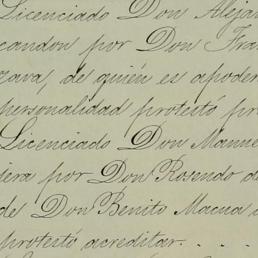 Licenciado Don Aleja
candon por Don Fra
zava, de quién es apoder
personalidad protestó pr
Licenciado Don Manue
jera por Don Rosendo d
de Don Benito Macua
protestó acreditar. . . .